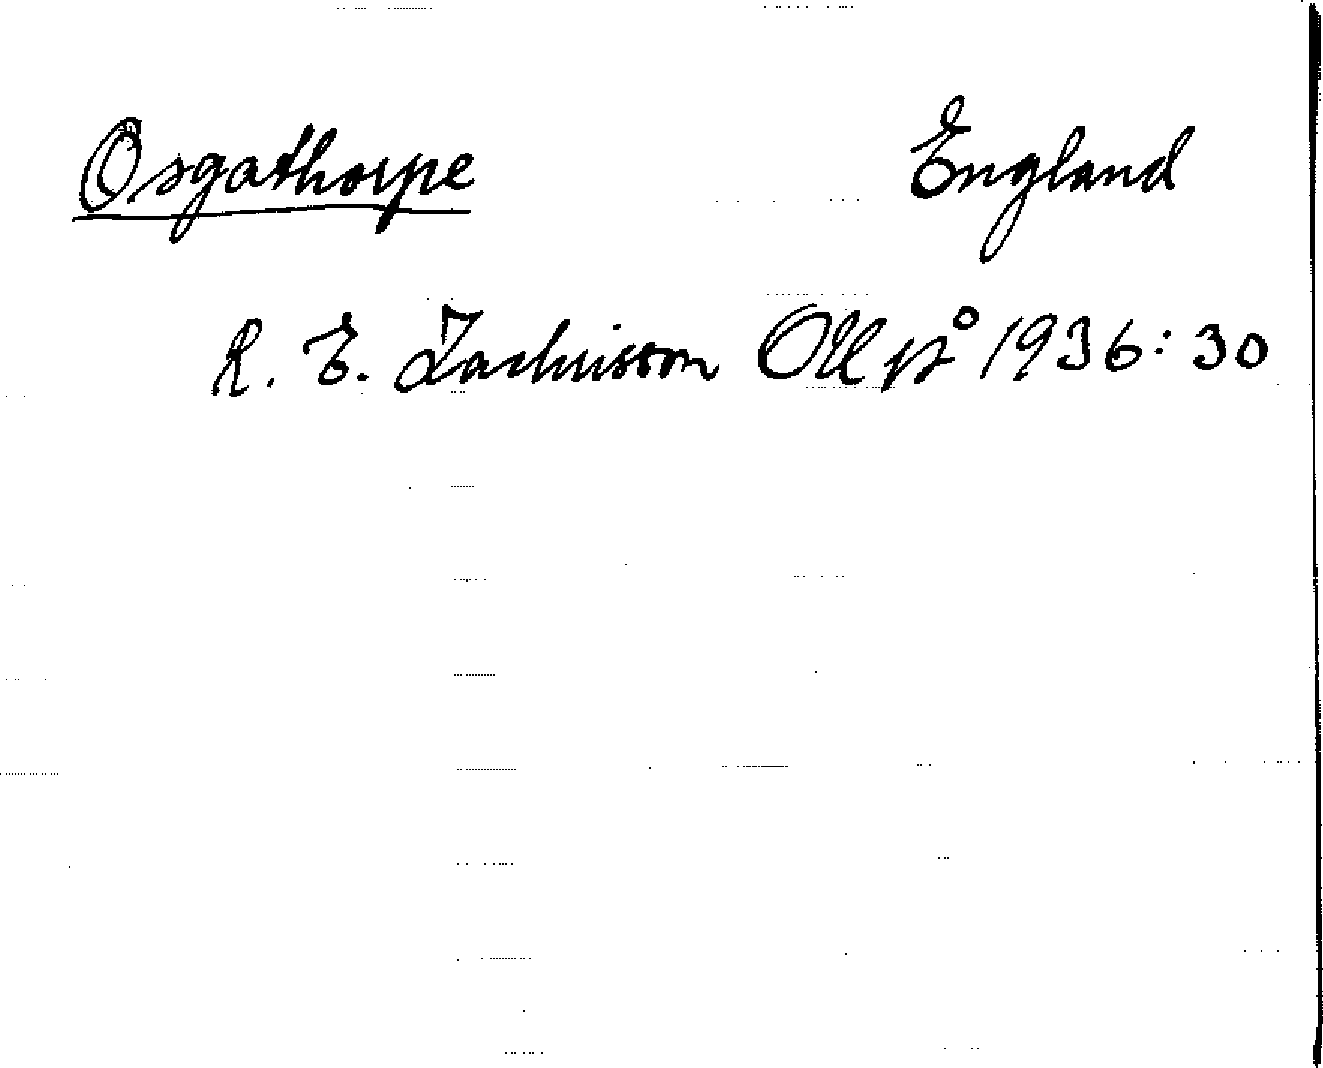 Osgathorpe England
R. E. Zachrisson OUPº 1936: 30